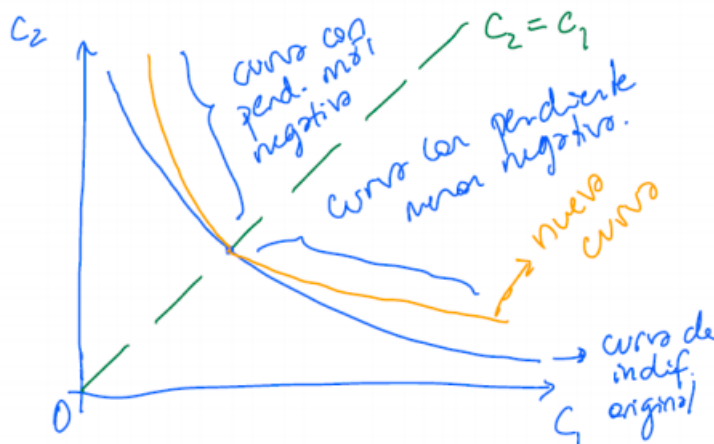 C₂
C₂ = C₁
curva con
pend. más
negativa
curva con pendiente
menos negativa.
nueva
curva
curva de
indif.
original
0
C₁